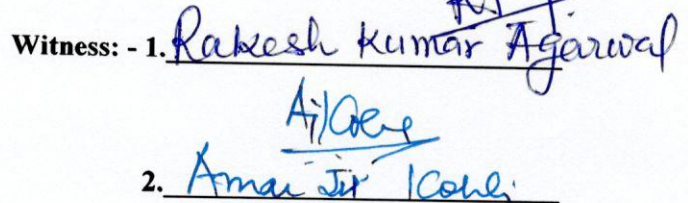 Witness: - 1. Rakesh Kumar Agarwal
2. Amar Jit Kohli